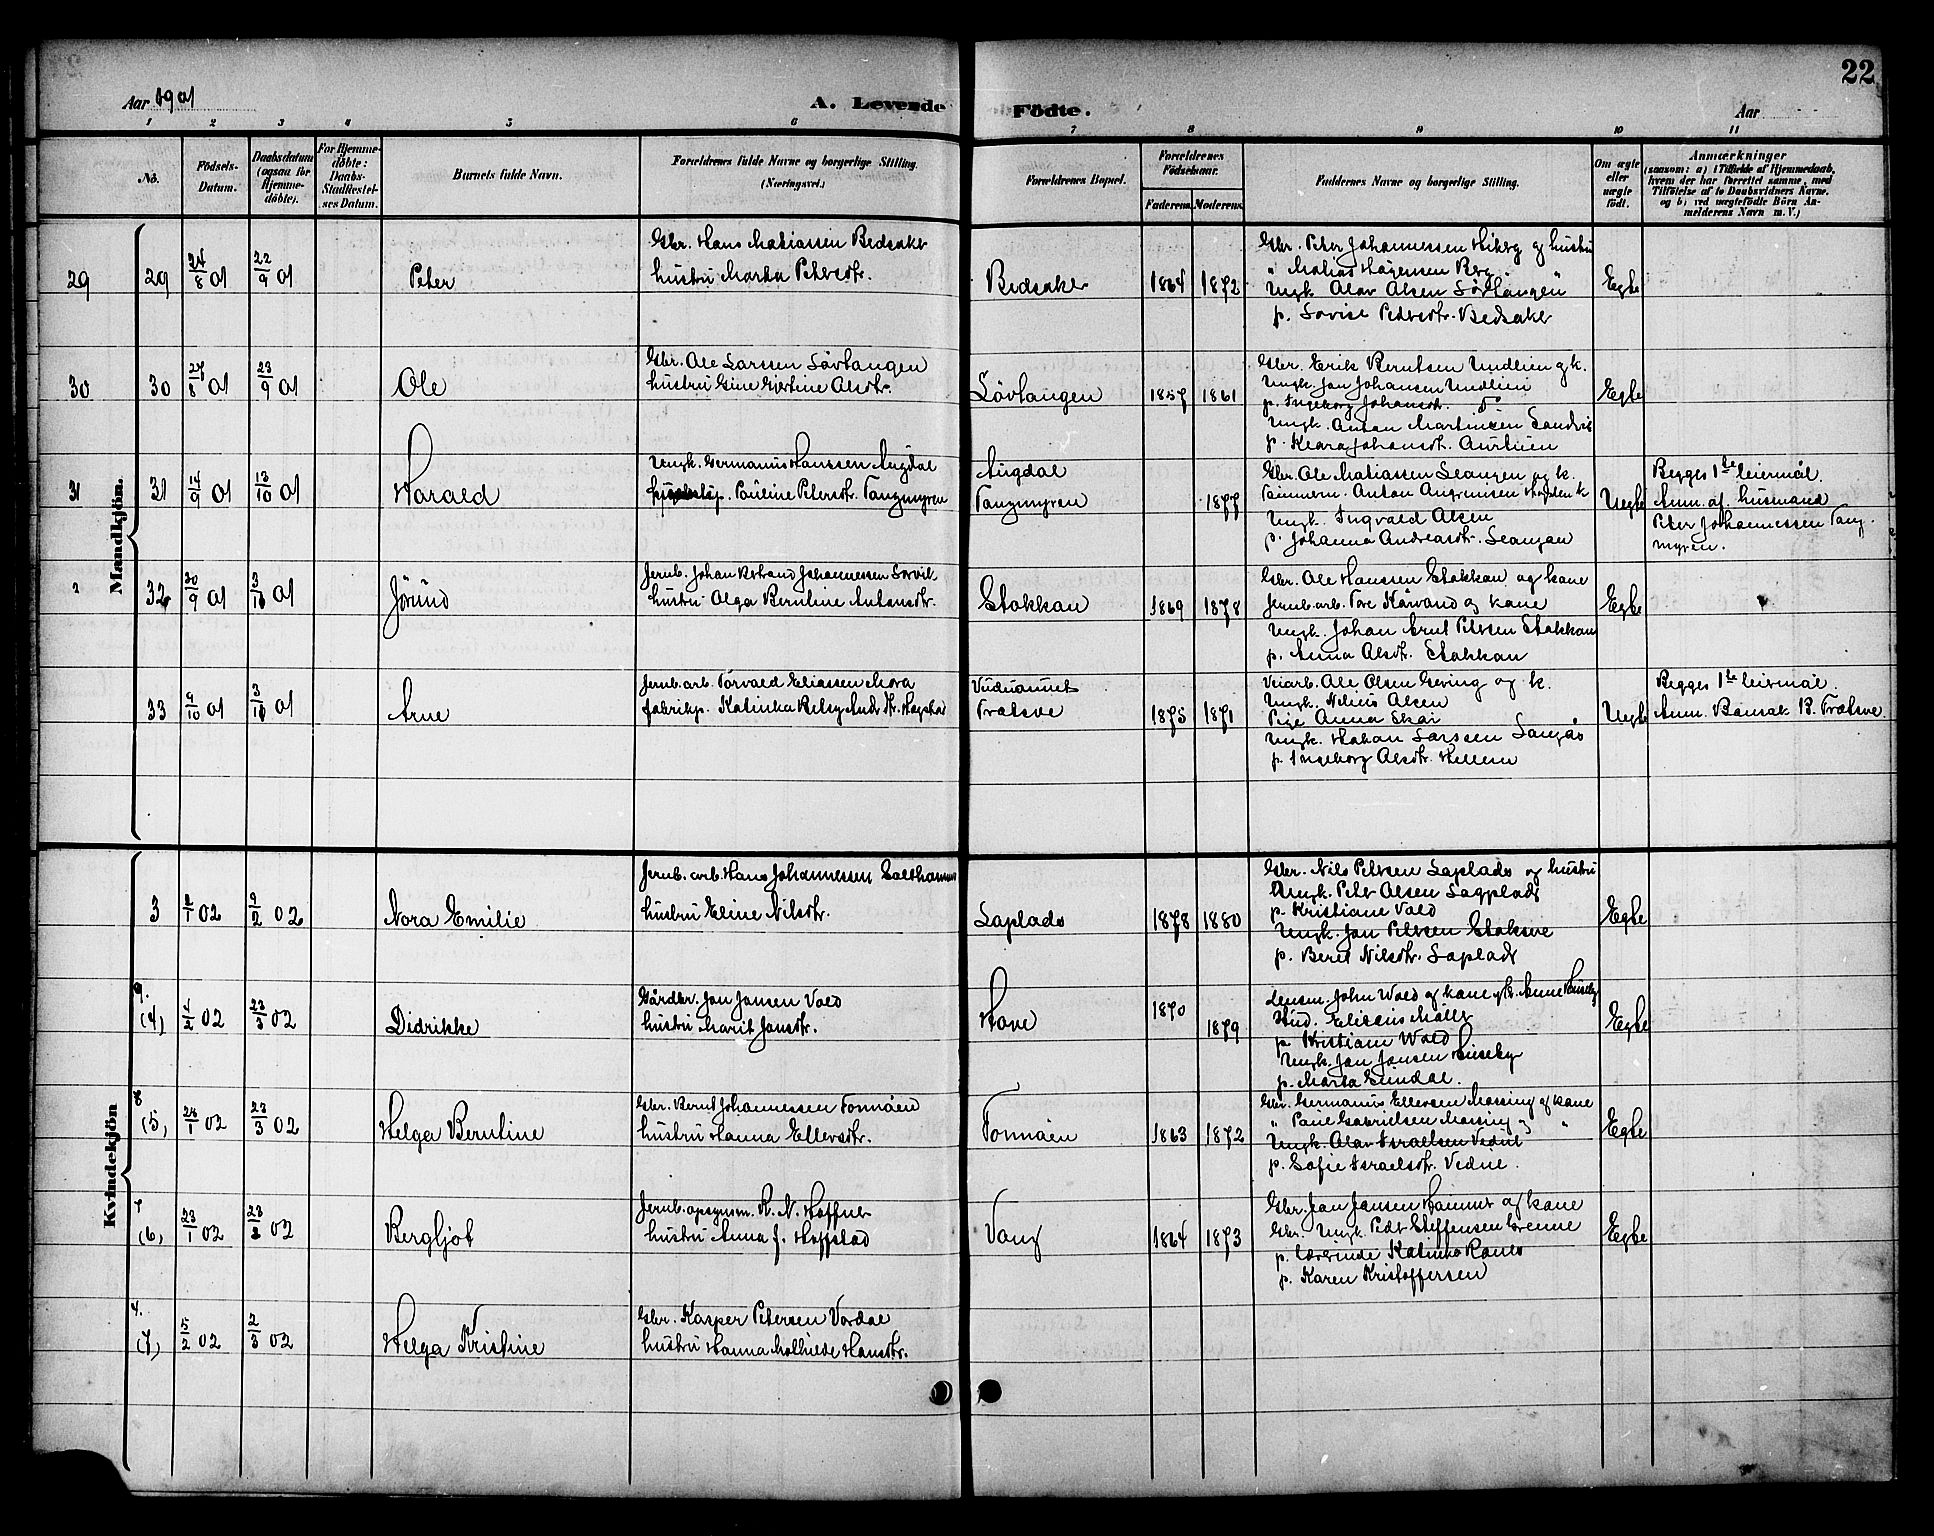 22
Aar 1901 A. Levende Födte. Aar
1 2 3 4 5 6 7 8 9 10 11
No. Födsels-Datum. Daabsdatum (ogsaa for Hjemmedöbte). For Hjemmedöbte: Daabs-Stadfæstelses Datum. Barnets fulde Navn. Forældrenes fulde Navne og borgerlige Stilling. (Næringsvei.) Forældrenes Bopæl. Forældrenes Födselsaar. Faderens. Moderens. Faddernes Navne og borgerlige Stilling. Om ægte eller uægte födt. Anmærkninger (saasom: a) i Tilfælde af Hjemmedaab, hvem der har forrettet samme, med Tilföielse af to Daabsvidners Navne, og b) ved uægtefödte Börn Anmelderens Navn m. V.)
Mandkjön.
29 29 24/8 01 22/9 01 Peter
Gbr. Hans Matiassen Bedsaker
hustru Marta Petersdtr.
Bedsaker 1864 1872
Gbr. Peter Johannessen Hikby og hustru
" Matias Hågensen Berg "
Ungk. Olav Olsen Løvtangen
p. Lovise Pedersdtr. Bedsaker
Egte
30 30 27/8 01 23/9 01 Ole
Gbr. Ole Larssen Løvtangen
hustru Eline Gjertine Olsdtr.
Løvtangen 1857 1861
Gbr. Erik Berntsen Undlien og k.
Ungk. Jon Johansen Undlien
p. Ingeborg Johansdr. do
Ungk. Anton Martinsen Sandvik
p. Klara Johansdtr. Aurtuen
Egte
31 31 17/9 01 13/10 01 Harald
Ungk. Germanus Hanssen Augdal
p. Pauline Petersdtr. Tangmyren
Augdal
Tangmyren 1877
Gbr. Ole Matiassen Leangen og k.
Tømmerm. Anton Angrimsen k
Ungk. Ingvald Olsen
p. Johanna Andreasdtr. Leangen
Uegte
Begges 1ste leiermål.
Anm. af husmand
Peter Johannessen Tang-
myren.
32 30/9 01 3/10 01 Jörund
Jernb. Johan Johannessen Sorvik
hustru Olga Berntine Antonsdtr.
Stokkan 1869 1878
Gbr. Ole Hanssen Stokkan og kane
Jernb.arb. Tore Kårvand og kane
Ungk. Johan Arnt Petersen Stokkan
p. Anna Olsdtr. Stokkan
Egte
33 9/10 01 3/11 01 Arne
Jernb.arb. Torvald Eliassen Mora
fabrikp. Katinka
Vuduamet
Trætsve 1875 1871
Veiarb. Ole Olsen Geving og k.
Ungk. Nilius Olsen
Pige Anna Skai
Ungk. Hakon Larssen Langås
p. Ingeborg Olsdtr. Hellem
Uegte
Begges 1ste leiermål.
Anm. Bansak B. Trætsve.
Kvindekjön
3 2/1 02 2/2 02 Nora Emilie
Jernb. arb. Hans Johannessen Salthammer
hustru Eline Nilsdtr.
Saplads 1878 1880
Gbr. Nils Petersen Saplads og hustru
Ungk. Peter Olsen Sagplads
p. Kristiane Vald
Ungk. Jon Petersen Stoksve
p. Beret Nilsdtr. Saplads
Egte
9. (4) 4/2 02 22/3 02 Didrikke
Gårdbr. Jon Jonsen Vold
hustru Marit Jonsdtr.
Hove 1870 1879
Lensm. John Wold og kane
Stud. Elizeus Müller
p. Kristiane Wold
Ungk. Jon Jonsen Huseby
p. Marta Eindal.
Egte
8 (5) 24/1 02 23/3 02 Helga Berntine
Gbr. Bernt Johannessen Tonnåen
hustru Hanna Ellevsdtr.
Tonnåen 1863 1872
Gbr. Germanus Ellevsen Massing og kane
" Paul Gabrielsen Massing og "
Ungk. Olav Israelsen Vedul
p. Sofie Israelsdtr. Vedul.
Egte
7 (6) 23/1 02 23/3 02 Bergljot
Jernb.opsynsm. K. N. Hoffner
hustru Anna f. Hoffstad
Vang 1864 1873
Gbr. Jon Jonsen Hammer og kane
Gbr. Ungk. Peter Steffensen Grenne
p. lærerinde Katinka Ranes
p. Karen Kristoffersen
Egte
4. (7) 5/2 02 2/3 02 Helga Kristine
Gbr. Kasper Petersen Vordal
hustru Hanna Mathilde Hansdtr.